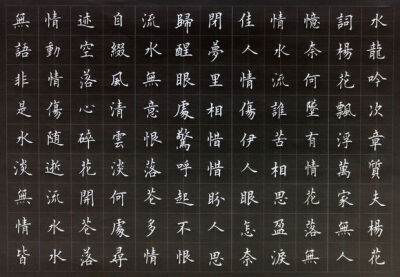 水龍吟次章質夫楊花
詞楊花飄浮萬家無人
憶奈何墜有情花落無
情水流誰苦相思盈淚
佳人情傷伊人眼怎奈
閉夢里相惜惜盼人思
歸醒眼處驚呼起不恨
流水無意恨落花多情
自綴風清雲淡何處尋
迹空落心碎花開花落
情動情傷隨逝流水水
無語非是水淡無情皆